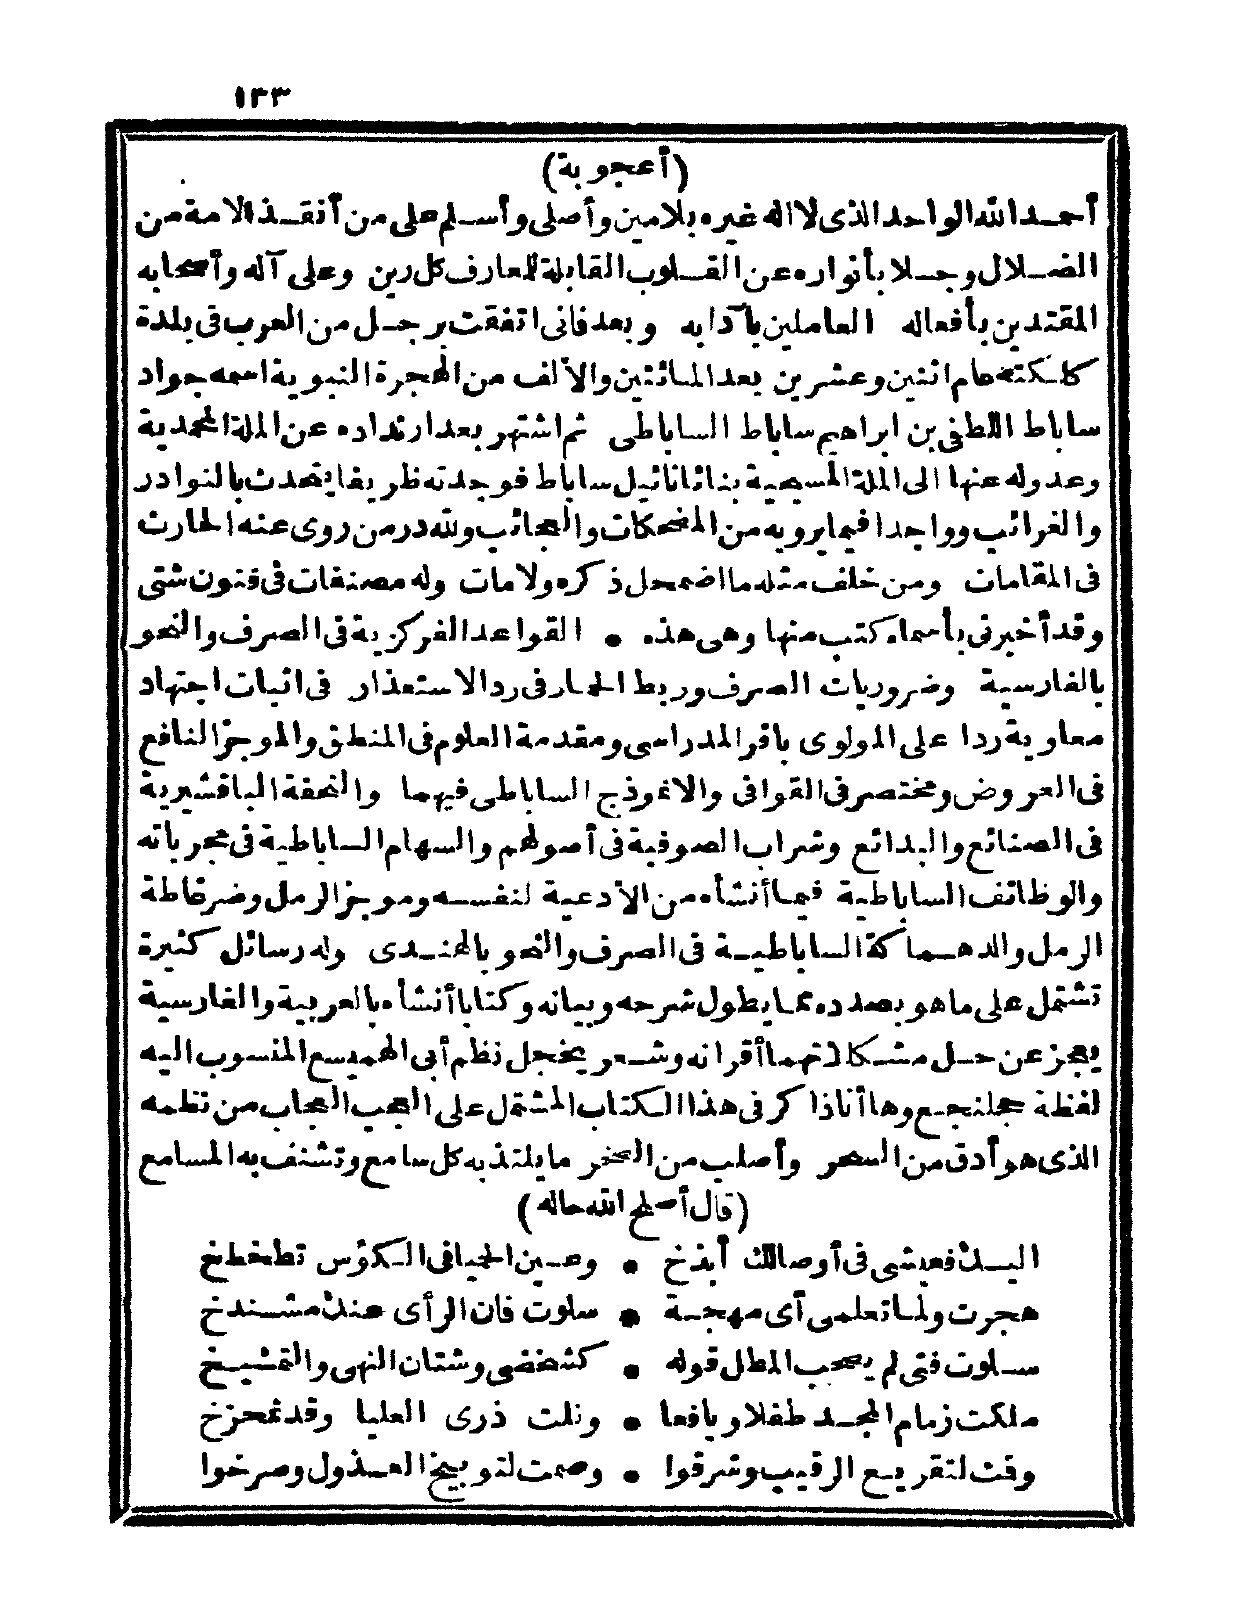 ١٣٣
(أعجوبة)
أحمد الله الواحد الذى لا اله غيره بلامين وأصلى وأسلم على من أنقذ الامة من
الضلال وجلا بأنواره عن القلوب القابلة للمعارف كل رين وعلى آله وأصحابه
المقتدين بأفعاله العاملين بآدابه وبعد فانى اتفقت برجل من العرب فى بلدة
كلكته عام اثنين وعشرين بعد المائتين والألف من الهجرة النبوية اسمه جواد
ساباط اللطفى بن ابراهيم ساباط الساباطى ثم اشتهر بعد ارتداده عن الملة المحمدية
وعدوله عنها الى الملة المسيحية بناثانائيل ساباط فوجدته ظريفا يتحدث بالنوادر
والغرائب وواجدا فيما يرويه من المضحكات والعجائب ولله در من روى عنه الحارث
فى المقامات ومن خلف مثله ما اضمحل ذكره ولامات وله مصنفات فى فنون شتى
وقد أخبرنى بأسماء كتب منها وهى هذه • القواعد الفركزية فى الصرف والنحو
بالفارسية وضروريات الصرف وربط الحمار فى رد الاستعذار فى اثبات اجتهاد
معاوية ردا على المولوى باقر المدراسى ومقدمة العلوم فى المنطق والموجز النافع
فى العروض ومختصر فى القوافى والانموذج الساباطى فيهما والتحفة الباقشيرية
فى الصنائع والبدائع وشراب الصوفية فى أصولهم والسهام الساباطية فى مجرباته
والوظائف الساباطية فيما أنشأه من الأدعية لنفسه وموجز الرمل وضرقاطة
الرمل والدهماكة الساباطية فى الصرف والنحو بالهندى وله رسائل كثيرة
تشتمل على ماهو بصدده مما يطول شرحه وبيانه وكتابا أنشأه بالعربية والفارسية
يعجز عن حل مشكلاتهما أقرانه وشعر يخجل نظم أبى الهميسع المنسوب اليه
لفظة جلنجع وها أنا ذا كر فى هذا الكتاب المشتمل على العجب العجاب من نظمه
الذى هو أدق من السحر وأصلب من الصخر ما يلتذ به كل سامع وتشنف به المسامع
(قال أصلح الله حاله)
اليك فعيشى فى أوصالك أبذخ • وعين الحيا فى الكؤس تطخطخ
هجرت ولما تعلمى أى مهجة • سلوت فان الرأى عندك مشندخ
سلوت فتى لم يصحب المطل قوله • كشخضى وشتان النهى والتمشيخ
ملكت زمام المجد طفلا ويافعا • ونلت ذرى العليا وقد تمحزخ
وقت لتقريع الرقيب وشرقوا • وصمت لتوبيخ العذول وصرخوا